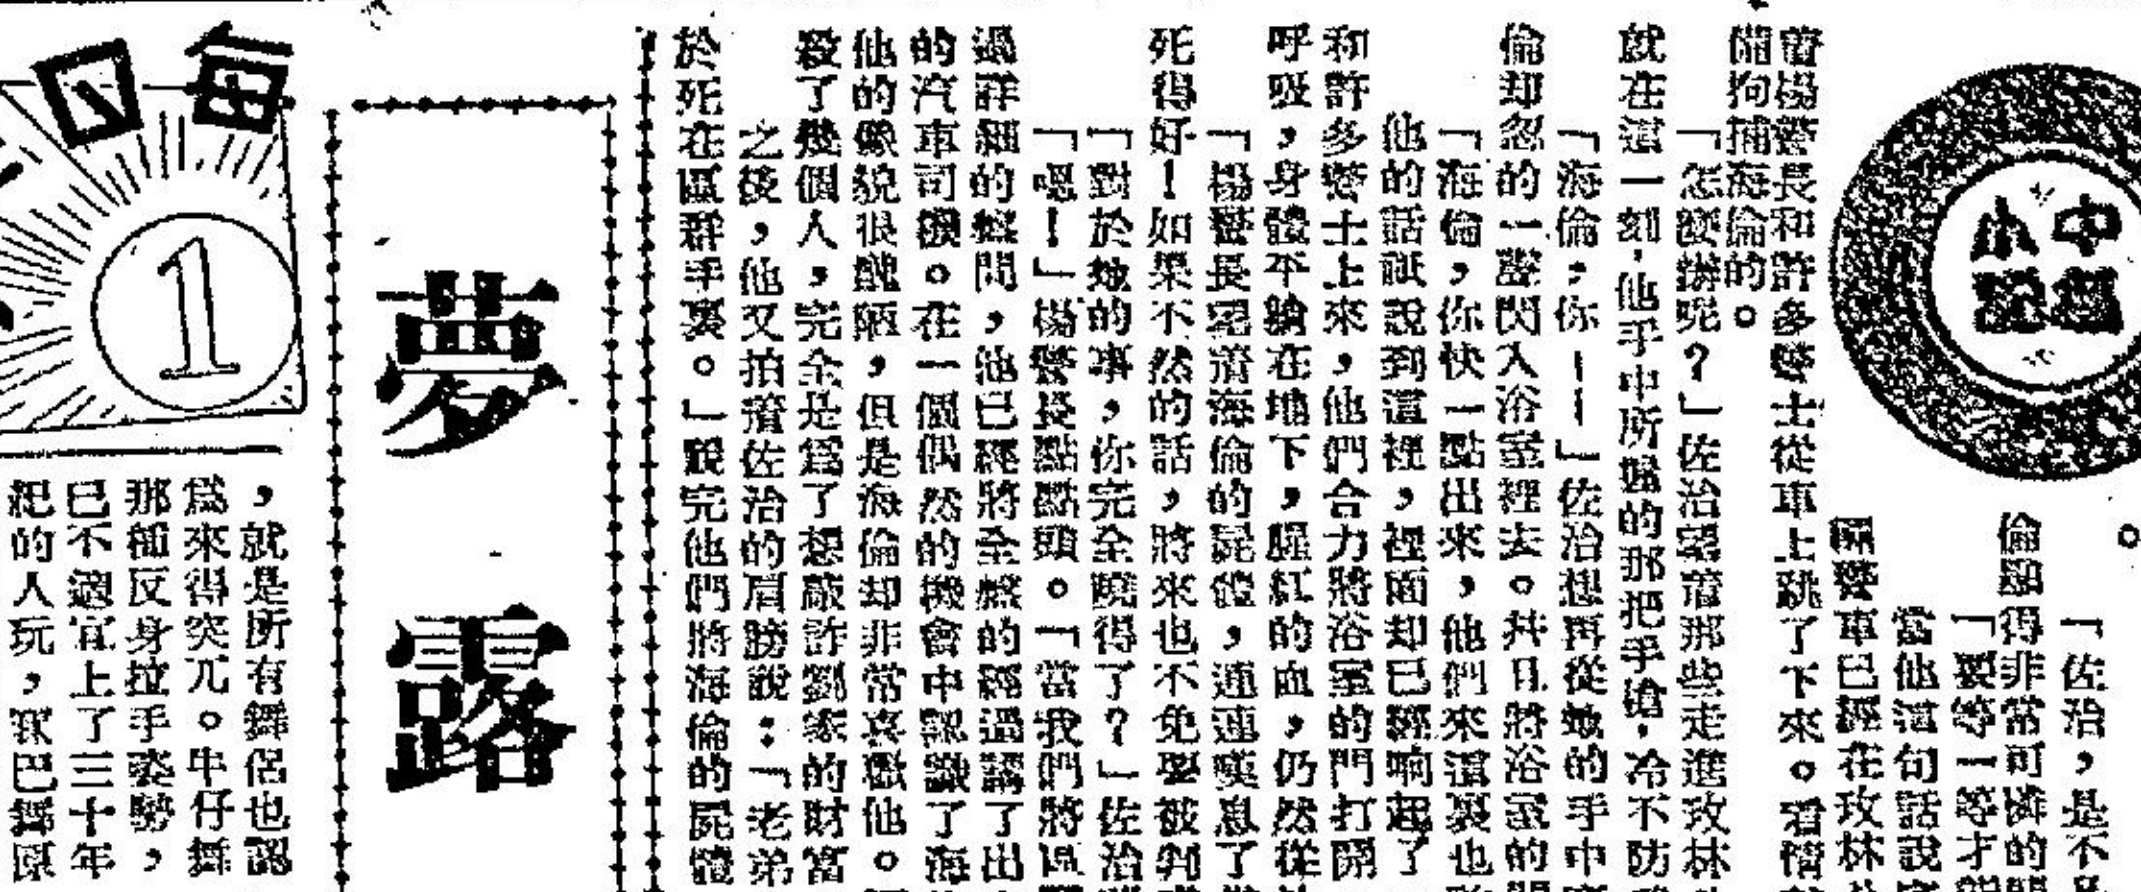 中篇
小說
「佐治，是不是
倫顯得非常可憐的
「要等一等才
當他這句話說
輛警車已經在玫林
着楊警長和許多警士從車上跳了下來。看情
備拘捕海倫的。
「怎麼辦呢？」佐治望着那些走進玫林
就在這一刻，他手中所握的那把手槍，冷不防
「海倫，你——」佐治想再從她的手中
倫却忽的一聲閃入浴室裡去。并且將浴室的
「海倫，你快一點出來，他們來這裏也
他的話祇說到這裡，裡面却已經响起了
和許多警士上來，他們合力將浴室的門打開
呼吸，身體平躺在地下，腥紅的血，仍然從
「楊警長望着海倫的屍體，連連嘆息了
死得好！如果不然的話，將來也不免要被判
「對於她的事，你完全曉得了？」佐治
「嗯！」楊警長點點頭。「當我們將區
過詳細的盤問，他已經將全盤的經過講了出
的汽車司機。在一個偶然的機會中認識了海
他的像貌很醜陋，但是海倫却非常喜歡他。
殺了幾個人，完全是爲了想敲詐劉家的財富
之後，他又拍着佐治的肩膀說：「老弟
於死在區群手裏。」說完他們將海倫的屍體
夢露
每日
1
，就是所有舞侶也認
爲來得突兀。牛仔舞
那種反身拉手姿勢，
已不適宜上了三十年
紀的人玩，